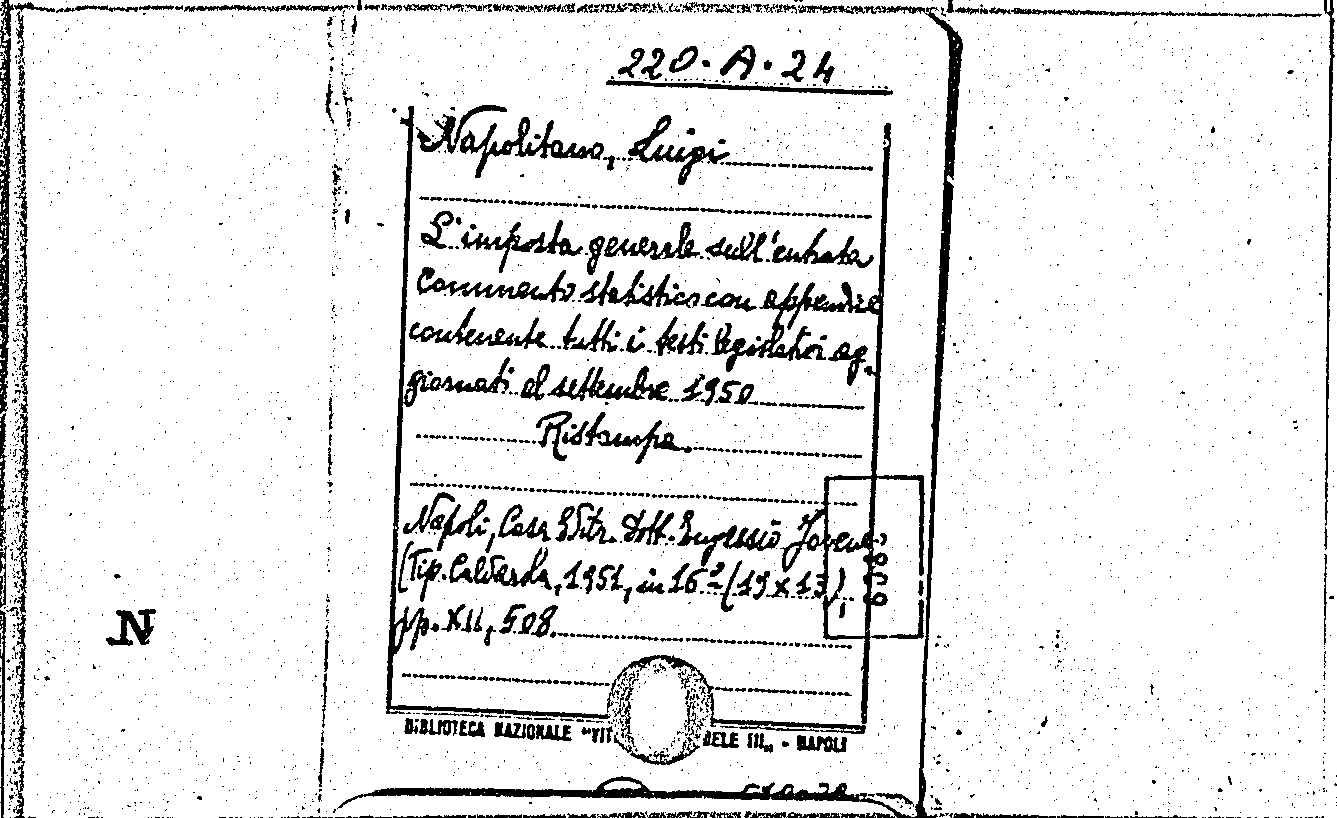 220.A.24
Napolitano, Luigi
L'imposta generale sull'entrata
Commento statistico con appendice
contenente tutti i testi legislativi ag-
giornati al settembre 1950
Ristampa
Napoli, Casa Editr. Dott. Eugenio Jovene
(Tip. Caldarola, 1951, in 16º (19x13),
pp. XII, 508.
BIBLIOTECA NAZIONALE "VIT DELE III„ - NAPOLI
N